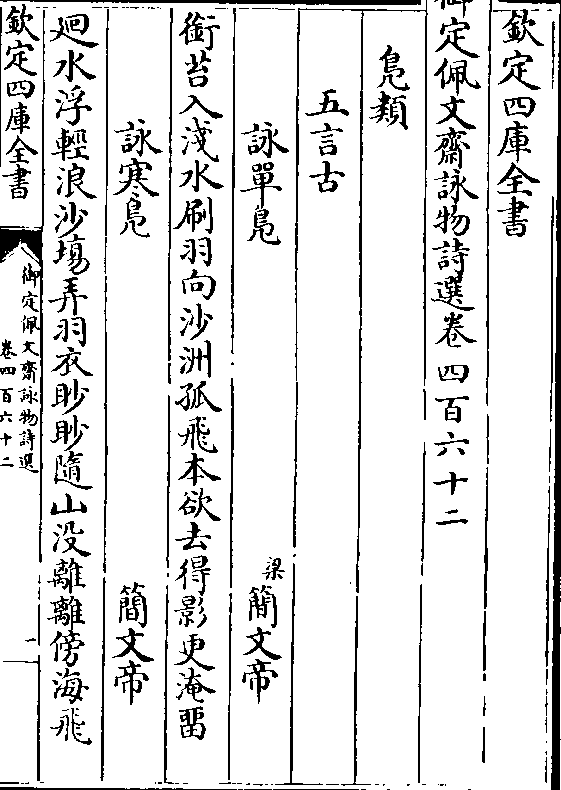 欽定四庫全書
御定佩文齋詠物詩選卷四百六十二
鳬類
五言古
詠單鳬　梁簡文帝
銜苔入淺水刷羽向沙洲孤飛本欲去得影更淹畱
詠寒鳬　簡文帝
廻水浮輕浪沙場弄羽衣眇眇隨山没離離傍海飛
欽定四庫全書
御定佩文齋詠物詩選
卷四百六十二
一